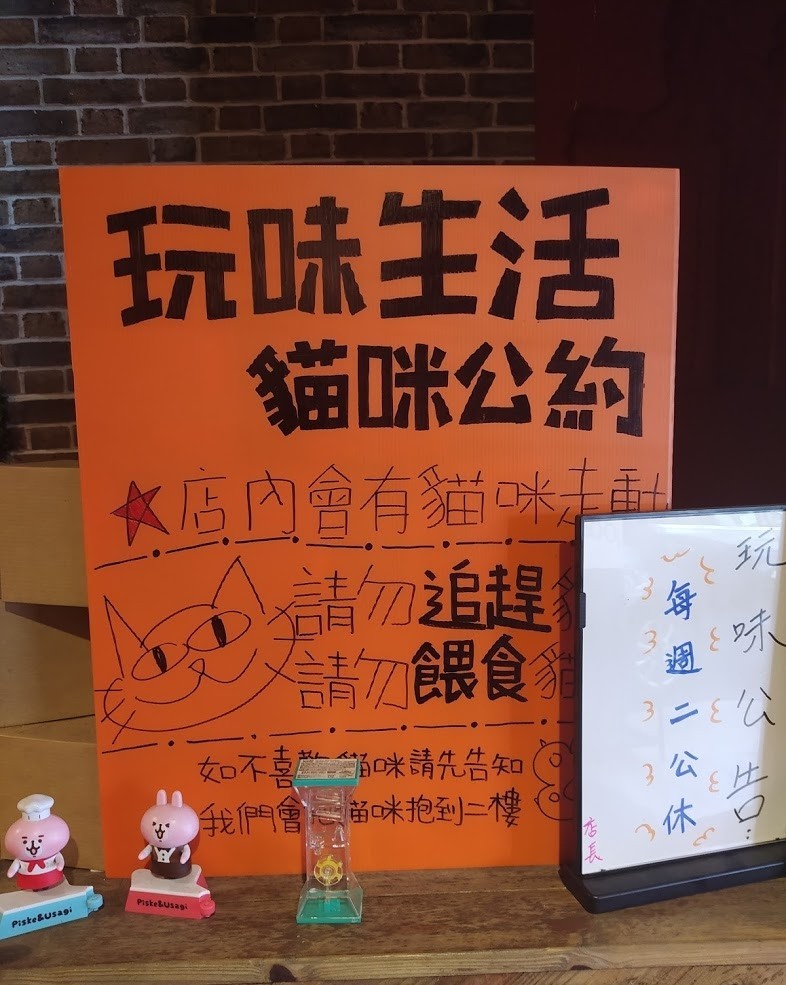 玩味生活
貓咪公約
店內會有貓咪走動
請勿追趕貓
請勿餵食貓
如不喜歡貓咪請先告知
我們會 貓咪抱到二樓
玩味公告:
每週二公休
店長
Piske&Usagi
Piske&Usagi